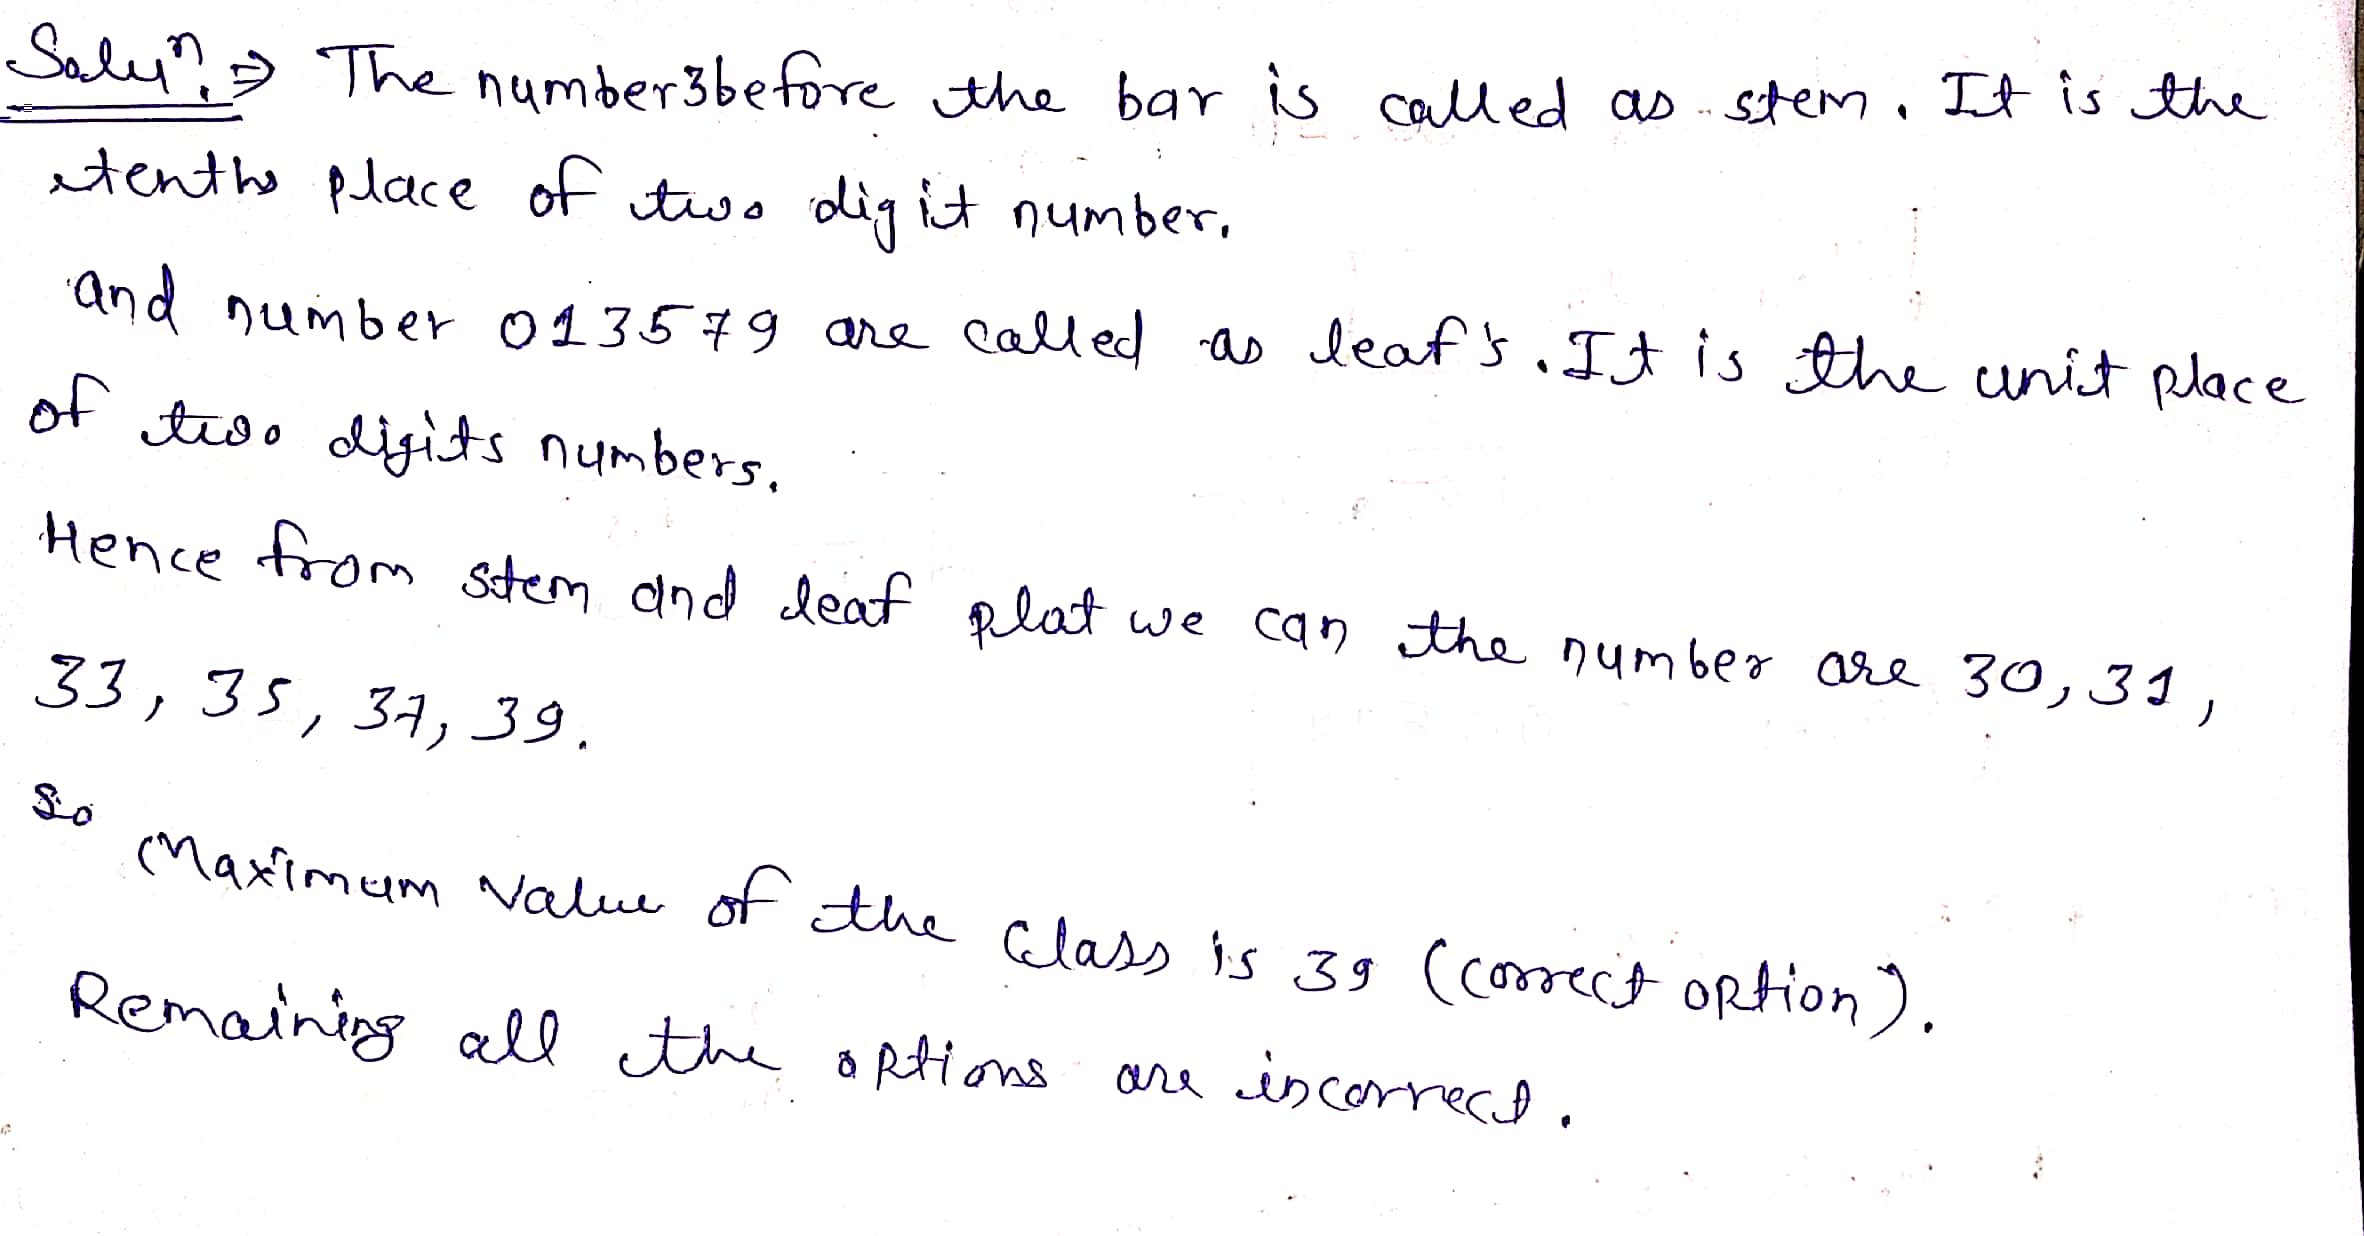 Soluⁿ.⇒ The number 3 before the bar is called as stem. It is the
tenths place of two digit number.
and number 013579 are called as leaf's. It is the unit place
of two digits numbers.
Hence from stem and leaf plot we can the number are 30, 31,
33, 35, 37, 39.
So Maximum value of the Class is 39 (correct option).
Remaining all the options are incorrect.